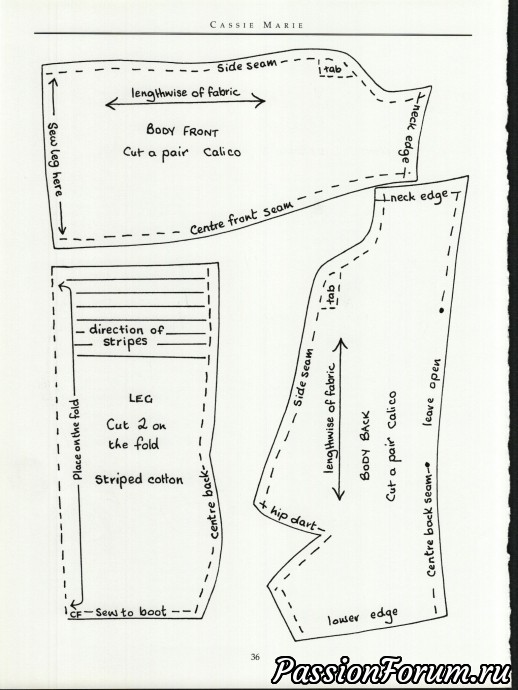 CASSIE MARIE
Side seam
tab
lengthwise of fabric
neck edge
BODY FRONT
Cut a pair Calico
Sew leg here
Centre front seam
neck edge
tab
direction of
stripes
Side seam
lengthwise of fabric
BODY BACK
Cut a pair Calico
leave open
Centre back seam
LEG
Cut 2 on
the fold
Striped cotton
Place on the fold
Centre back
+ hip dart
CF
Sew to boot
lower edge
36
PassionForum.ru